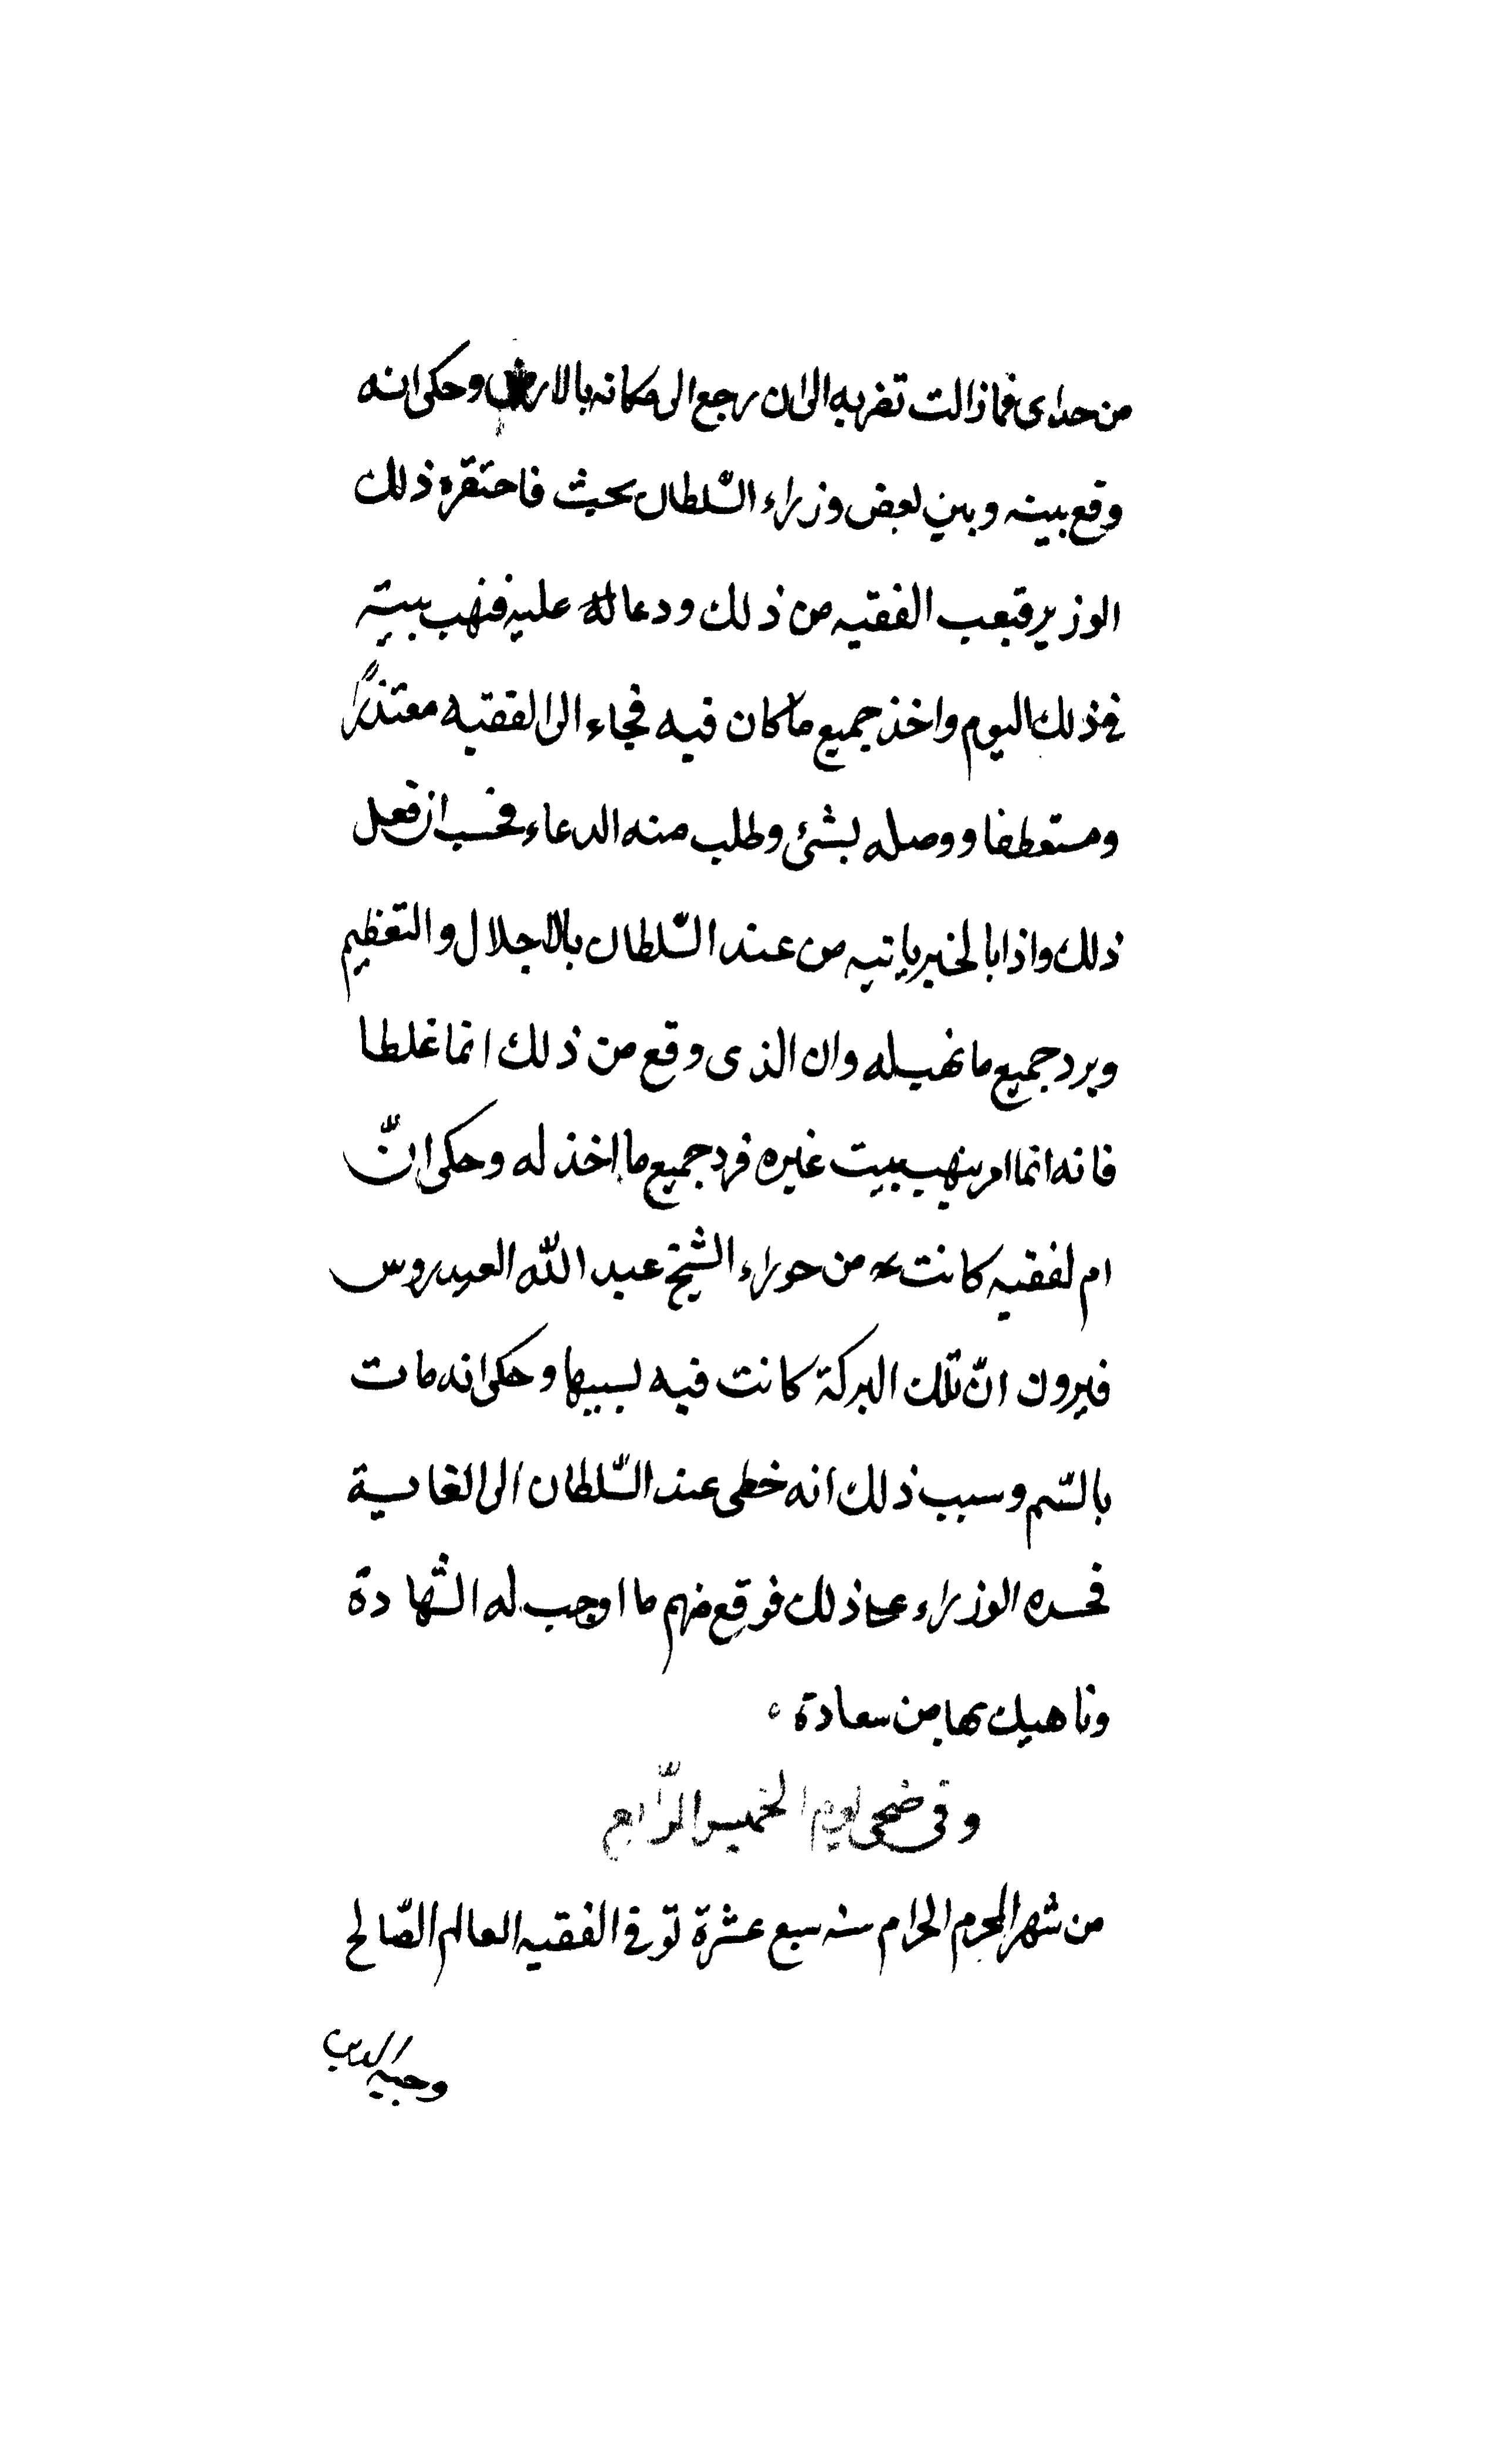 من حداى فما زالت تضربه الى ان رجع الى مكانه بالارض وحكى انه
وقع بينه وبين بعض وزراء السّلطان بحيث فاحتقره ذلك
الوزير فتعب الفقيه من ذلك ودعا له عليه فنهب بيته
فى ذلك اليوم واخذ جميع ما كان فيه فجاء الى الفقيه معتذرًا
ومستعطفا ووصله بشئ وطلب منه الدعاء فحسب ان فعل
ذلك واذا بالخبر ياتيه من عند السّلطان بالاجلال والتعظيم
ويرد جميع ما نهب له وان الذى وقع من ذلك انما غلطا
فانه انما امر بنهب بيت غيره فرد جميع ما اخذ له وحكى انّ
ام لفقيه كانت من حوراء الشيخ عبد اللّه العيدروس
فيرون انّ تلك البركة كانت فيه بسببها وحكى انه مات
بالسّم وسبب ذلك انه خطى عند السّلطان الى الغاية
فحسده الوزراء على ذلك فوقع منهم ما اوجب له الشهادة
وناهيك بها من سعادة ه
وفى ضحى يوم الخميس الرّابع
من شهر المحرم الحرام سنه سبع عشرة توفى الفقيه العالم الصّالح
وجيه الدين